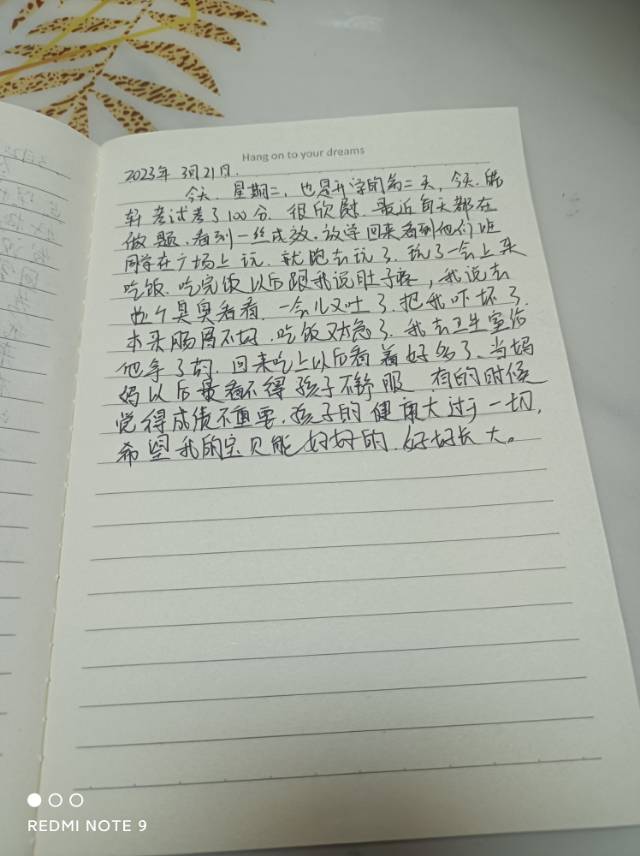 Hang on to your dreams
2023年 3月21日.
今天. 星期二, 也是升学的第二天, 今天. 熊
轩考试考了100分. 很欣慰. 最近每天都在
做题, 看到一丝成效. 放学回来看到他们班
同学在广场上玩. 就跑去玩了. 玩了一会上来
吃饭. 吃完饭以后跟我说肚子疼, 我说去
拉个臭臭看看. 一会儿又吐了. 把我吓坏了.
本来肠胃不好, 吃饭又太急了. 我去卫生室给
他拿了药. 回来吃上以后看着好多了、当妈
妈以后最看不得孩子不舒服 有的时候
觉得成绩不重要, 孩子的健康大过于一切,
希望我的宝贝能好好的. 好好长大。
REDMI NOTE 9